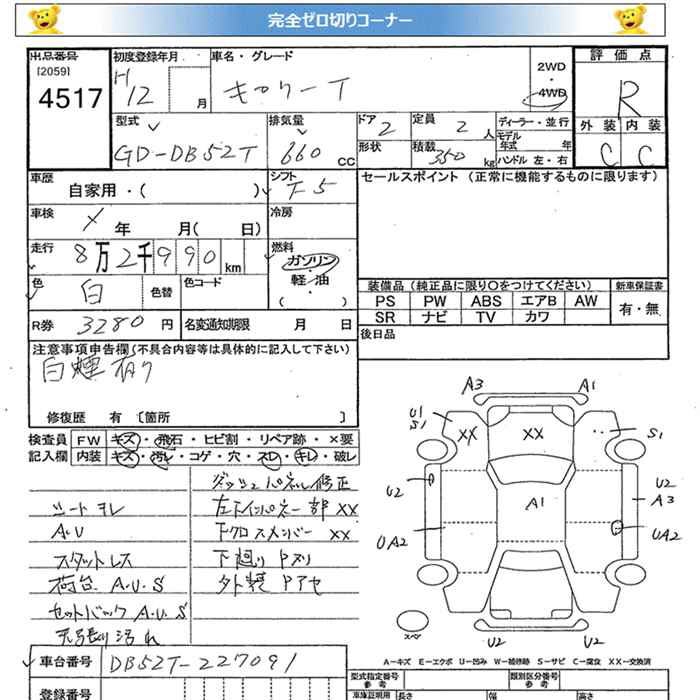 完全ゼロ切りコーナー
出品番号 初度登録年月 車名・グレード 評価点
[2059] H 2WD
4517 12 月 キャリーT 4WD R
型式 排気量 ドア 定員 ディーラー・並行 外装 内装
GD-DB52T 660 CC 2 2 人 モデル年式 年 C C
形状 積載 350 kg ハンドル 左・右
車歴 シフト セールスポイント(正常に機能するものに限ります)
自家用・( ) F5
車検 冷房
年 月(日)
走行 8万2千990 km 燃料 ガソリン
軽油
( )
色 白 色替 色コード
装備品(純正品に限り○をつけてください) 新車保証書
PS PW ABS エアB AW 有・無
SR ナビ TV カワ
R券 3280 円 名変通知期限 月 日 後日品
注意事項申告欄(不具合内容等は具体的に記入して下さい)
白煙有り
修復歴 有 [箇所 ]
検査員 FW キズ・飛石・ヒビ割・リペア跡・×要
記入欄 内装 キズ・汚レ・コゲ・穴・スレ・キレ・破レ
ダッシュパネル修正
シートヨレ 左下インパネ一部XX
A.U 下クロスメンバーXX
スタットレス 下廻りPヌリ
荷台 A.U.S 外装 Pアセ
セットバック A.U.S
天張り汚れ
A3 A1
U1 S XX XX S1
U2 U2
A1 A3
UA2 UA2
スペ
U2 U2
A-キズ E-エクボ U-凹み W-補修跡 S-サビ C-腐食 XX-交換済
車台番号 DB52T-227091 型式指定番号 参考 類別区分番号 参考
登録番号 車庫証明用 長さ 幅 高さ